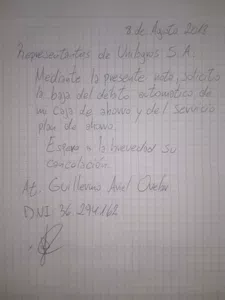 8 de Agosto 2018
Representantes de Unilagos S.A
Mediante la presente nota, solicito
la baja del debito automatico de
mi caja de ahorro y del servicio
plan de ahorro.
Espero a la brevedad su
cancelación.
At. Guillermo Ariel
DNI: 36.294.162